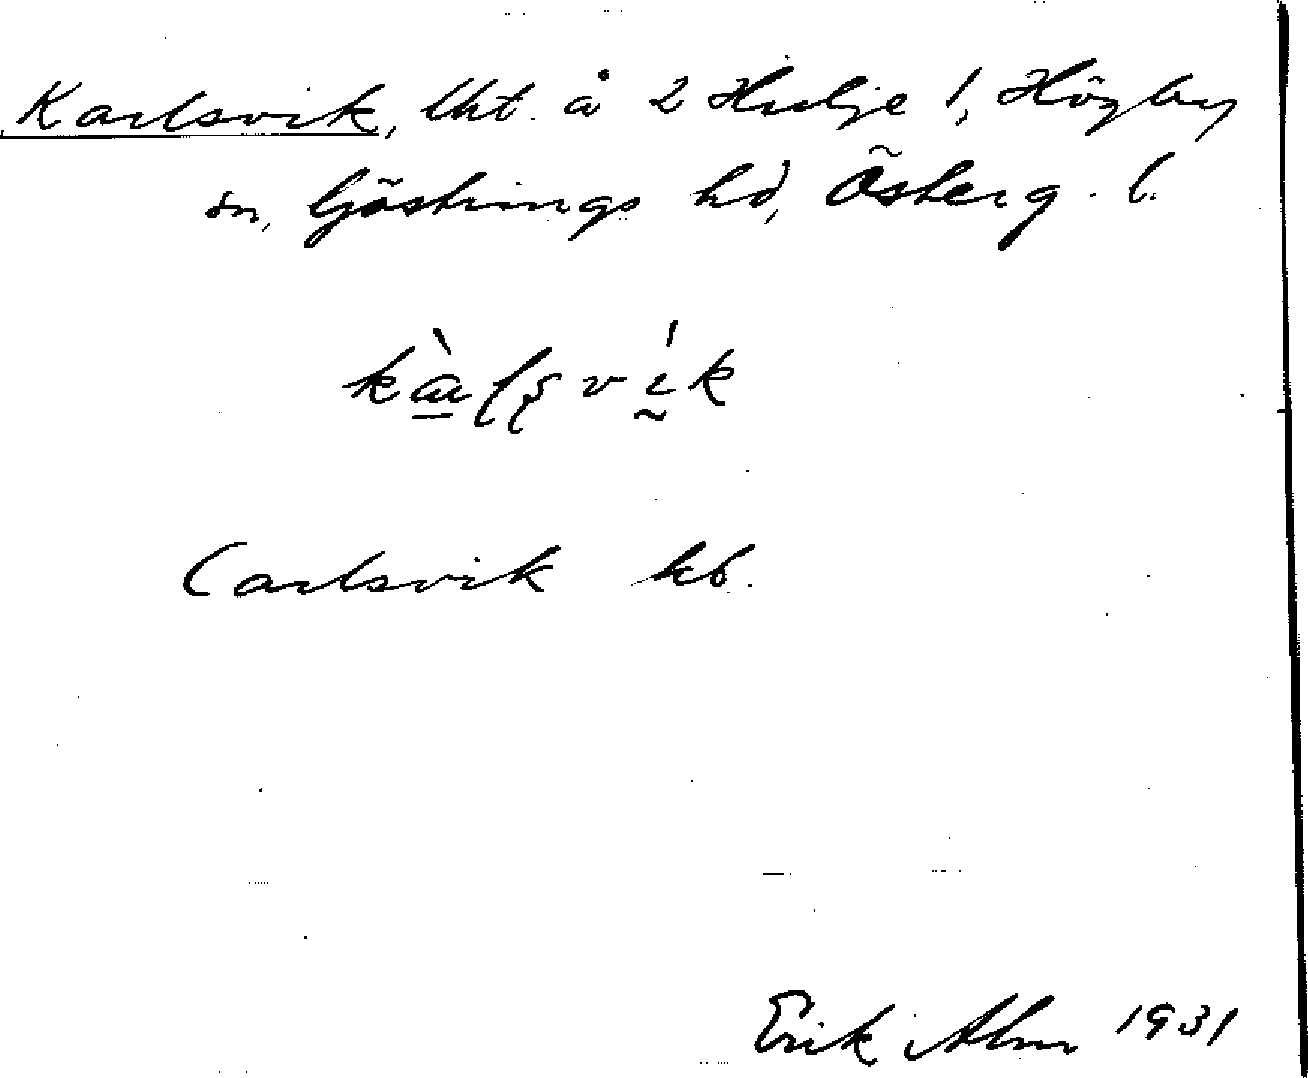 Karlsvik, lht. å 2 Hulje 1, Högby
sn, Göstrings hd, Österg. l.
kàlsvík
Carlsvik kb.
Erik Alm 1931